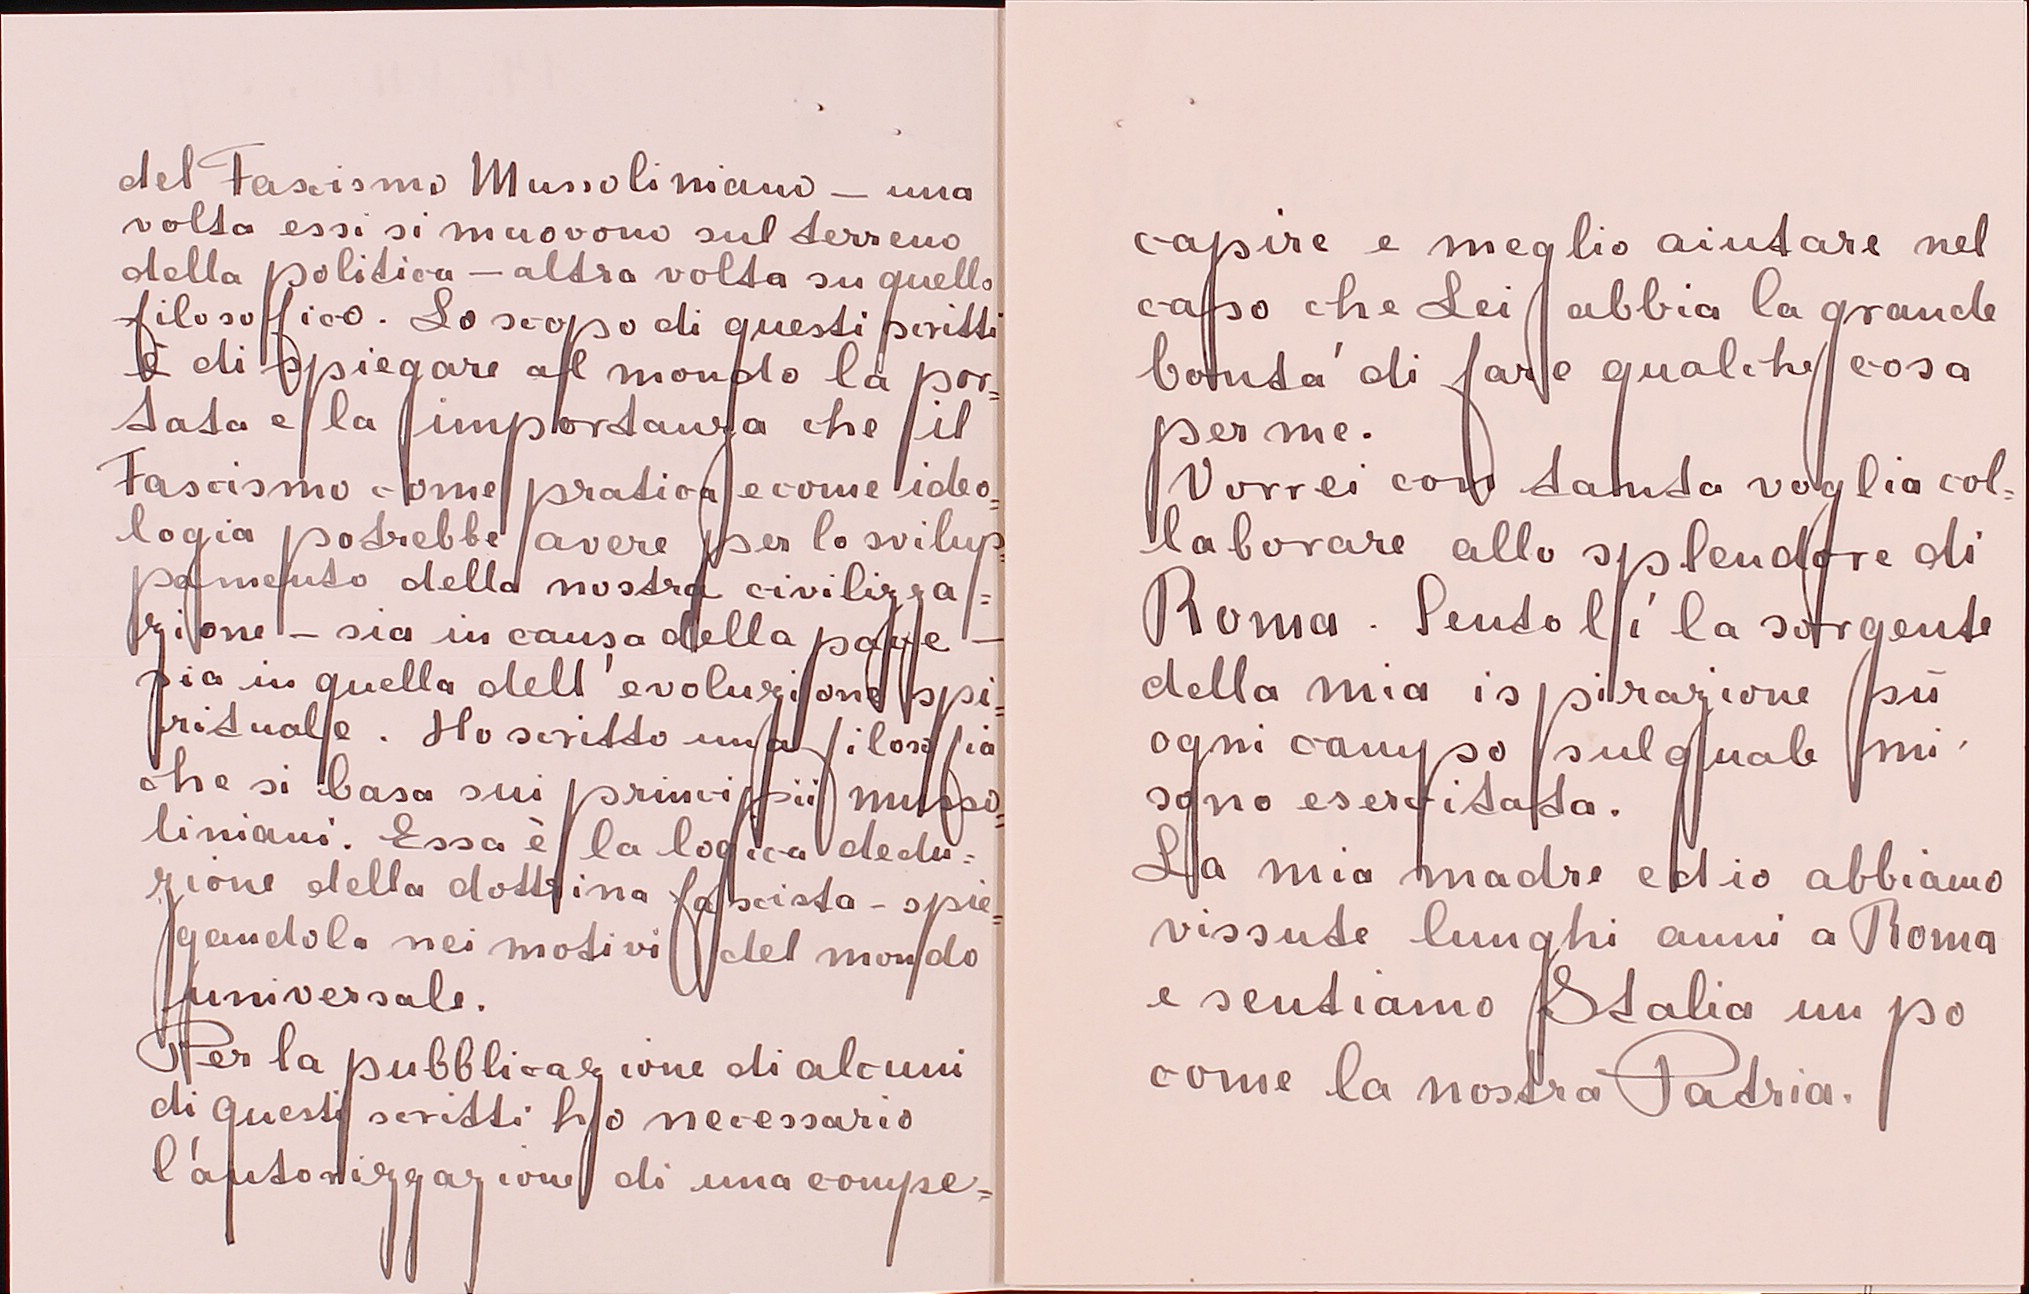 del Fascismo Mussoliniano — una
volta essi si muovono sul terreno
della politica — altra volta su quello
filosoffico. Lo scopo di questi scritti
è di spiegare al mondo la por=
tata e la importanza che il
Fascismo come pratica e come ideo=
logia potrebbe avere per lo svilup=
pamento della nostra civilizza=
zione — sia in causa della pace —
sia in quella dell'evoluzione spi=
rituale. Ho scritto una filosofia
che si basa sui principii musso=
liniani. Essa è la logica dedu=
zione della dottrina fascista — spie=
gandola nei motivi del mondo
universale.
Per la pubblicazione di alcuni
di questi scritti ho necessario
l'autorizzazione di una compe=
capire e meglio aiutare nel
caso che Lei abbia la grande
bontá di fare qualche cosa
per me.
Vorrei con tanta voglia col=
laborare allo splendore di
Roma. Sento lí la sorgente
della mia ispirazione sù
ogni campo sul quale mi
sono esercitata.
La mia madre ed io abbiamo
vissute lunghi anni a Roma
e sentiamo Italia un po
come la nostra Patria.